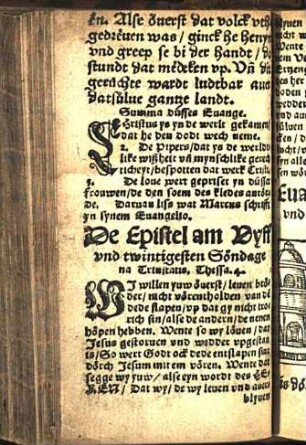 en. Alse överst dat volck vth
gedreuen was / ginck he henyn
vnd greep se bi der handt / do
stundt dat medeken vp. Vñ dit
gerüchte wardt ludtbar auer
datsülue gantze landt.
Summa düsses Euange.
Christus ys yn de werlt gekamen
dat he den dodt wech neme.
2. De Piperś / dat ys de werldt
like wißheit vñ mynschlike gerech
ticheyt / bespotten dat werk Christi
3. De loue wert gepriset yn düsser
frouwen / de den soem des kledes anrör
de. Daruan liss wat Marcus schrifft
yn synem Euangelio.
De Epistel am Vyff
vnd twintigesten Söndage
na Trinitatis, Thessa. 4.
WI willen yuw överst / leuen brö
der / nicht vörentholden van den
de slapen / vp dat gy nicht tro
rich sin / alse de andern / de nenen
höpen hebben. Wente so wy löuen / dat
Jesus gestoruen vnd wedder vpgestan
is / So wert Godt ock dede entslapen sint
dörch Jesum mit em vören. Wente dat
segge wy yuw / alse eyn wordt des HE
REN / Dat wy / de wy leuen vnd auer
blyuen